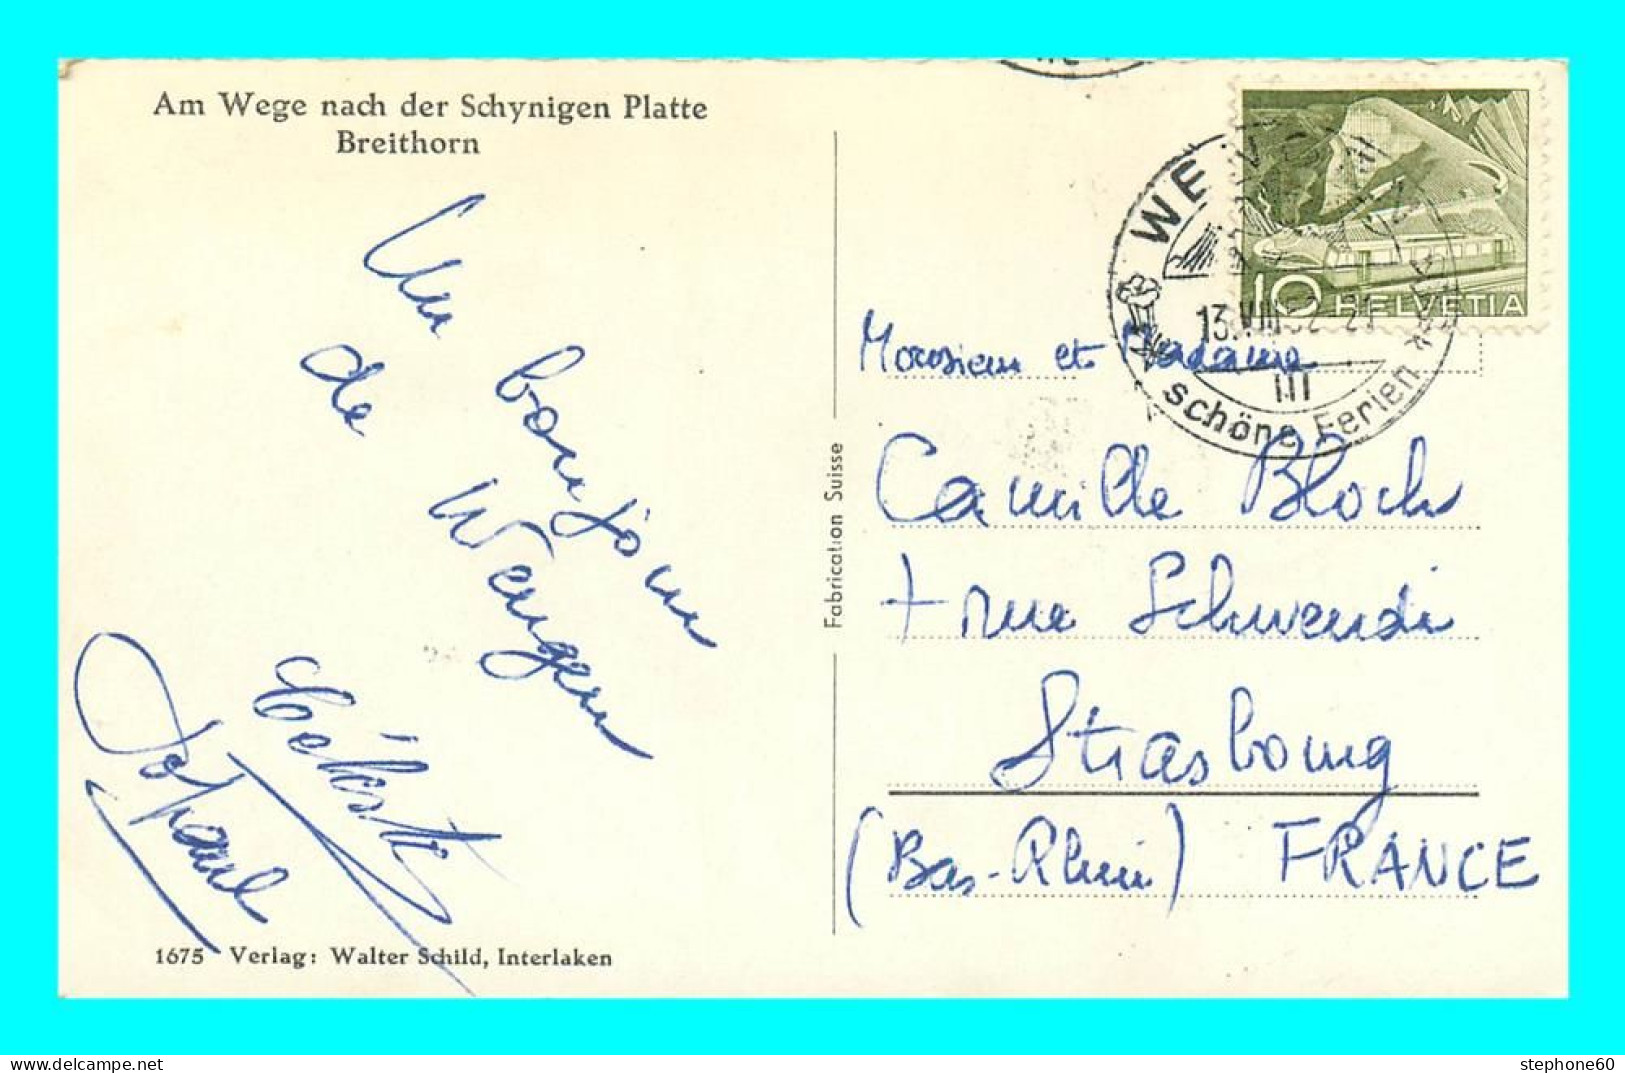 Am Wege nach der Schynigen Platte
Breithorn
Un bonjour
de Wengen
Céleste
1675 Verlag: Walter Schild, Interlaken
Fabrication Suisse
WENGEN
13.VIII.52-21
III
schöne Ferien
10 HELVETIA
Monsieur et Madame
Camille Bloch
rue Schwendi
Strasbourg
(Bas-Rhin) FRANCE
delcampe.net
stephone60